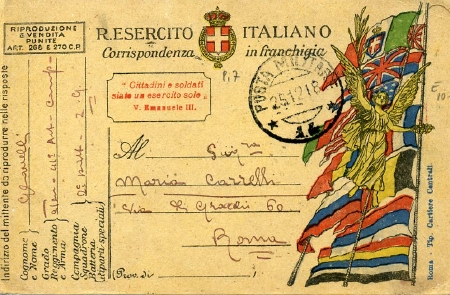 RIPRODUZIONE
& VENDITA
PUNITE
ART. 286 E 270 C.P.
R. ESERCITO ITALIANO
Corrispondenza in franchigia
"Cittadini e soldati
siate un esercito solo"
V. Emanuele III.
POSTA MILITARE
Al
Maria
Via 60
Roma
(Prov. di )
Indirizzo del mittente da riprodurre nelle risposte
Cognome
e Nome
Grado
Reggimento
e Arma
Compagnia
Squadrone
Batteria
(riparti speciali)
Roma Tip. Cartiere Centrali